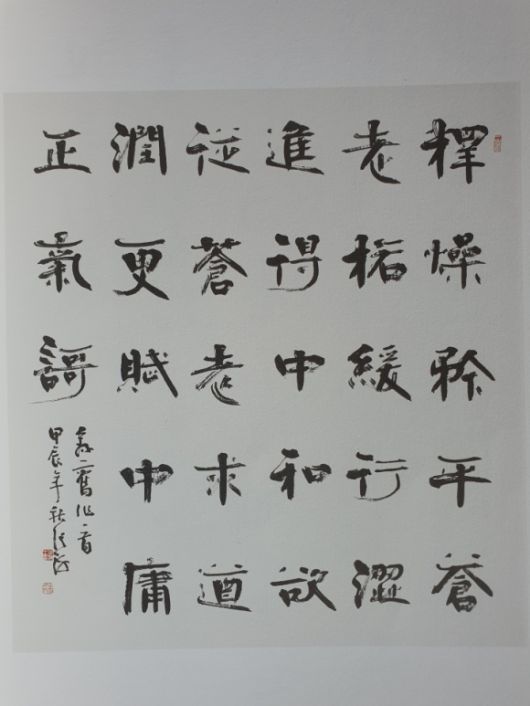 釋燥矜平蒼
老枯緩行澀
進得中和欲
從蒼老求遒
潤更賦中庸
正氣謌
舊作一首
甲辰年秋